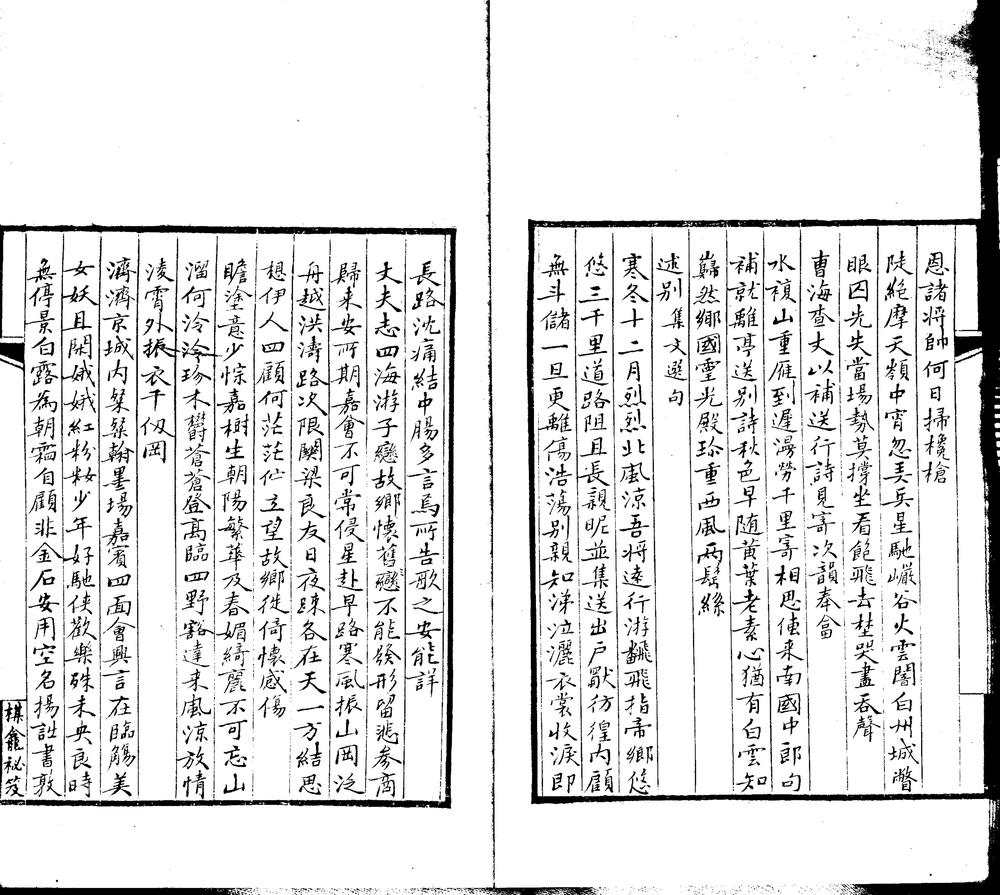 恩諸將帥何日掃欃槍
陡絕摩天嶺中宵忽美兵星馳巖谷火雲闇白州城瞥
眼囚先失當場勢莫撐坐看飽飛去埜哭盡吞聲
曹海查丈以補送行詩見寄次韻奉畣
水複山重雁到遲漫勞千里寄相思傳来南國中郎句
補就離亭送別詩秋色早随黄葉老素心猶有白雲知
巋然鄉國靈光殿珍重西風两鬂絲
述別 集文選句
寒冬十二月烈烈北風涼吾將遠行游翻飛指帝鄉悠
悠三千里道路阻且長親昵並集送出戶獻彷徨内顧
無斗儲一旦更離傷浩蕩別親知涕泣灑衣裳收淚即
長路沈痛結中腸多言焉所告歌之安能詳
丈夫志四海游子戀故鄉懷舊戀不能發形留悲参商
歸来安所期嘉會不可常侵星赴早路寒風振山岡泛
舟越洪濤路次限關梁良友日夜踈各在天一方結思
想伊人四顧何茫茫伫立望故鄉徙倚懷感傷
瞻塗意少悰嘉樹生朝陽繁華及春媚綺麗不可忘山
溜何泠泠珍木鬱蒼蒼登高臨四野豁達来風涼放情
淩霄外振衣千仭岡
濟濟京城内粲粲翰墨場嘉賓四面會興言在臨觴美
女妖且閑娥娥紅粉粧少年好馳俠歡樂殊未央良時
無停景白露為朝霜自顧非金石安用空名揚詎書敦
棋龕祕笈